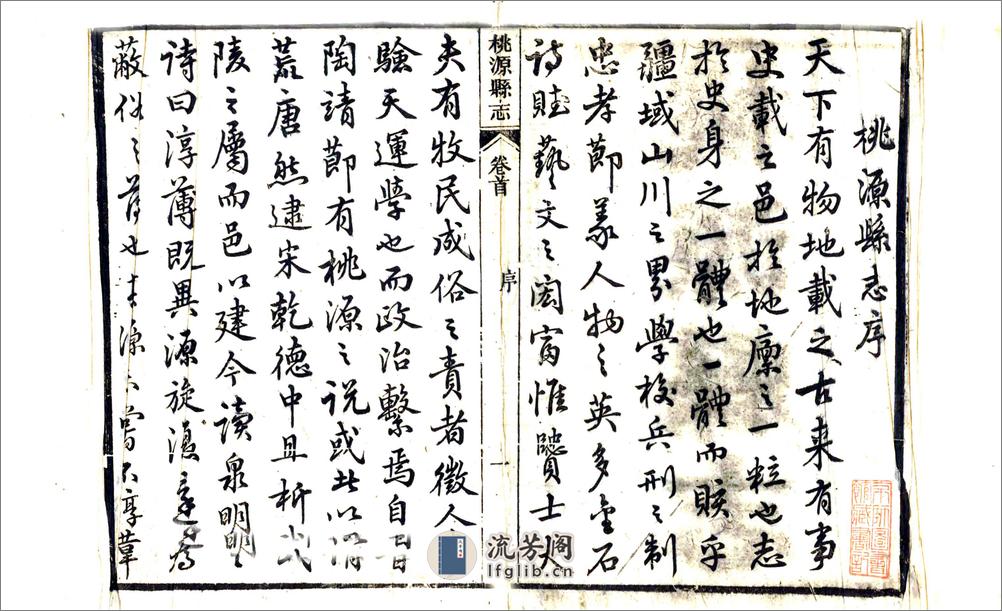 桃源縣志序
天下有物地載之古来有事
史載之邑於地廩之一粒也志
於史身之一體也一體而賅乎
疆域山川之界學校兵刑之制
忠孝節義人物之英多金石
詩賦藝文之宏富惟賢士大
桃源縣志 卷首 序 一
夫有牧民成俗之責者徵人
驗天運學也而政治繫焉自晉
陶靖節有桃源之説或此以謂
荒唐然逮宋乾德中且析武
陵之屬而邑以建今讀泉明之
詩曰淳薄既異源旋復還
蔽俗之
流芳阁
lfglib.cn